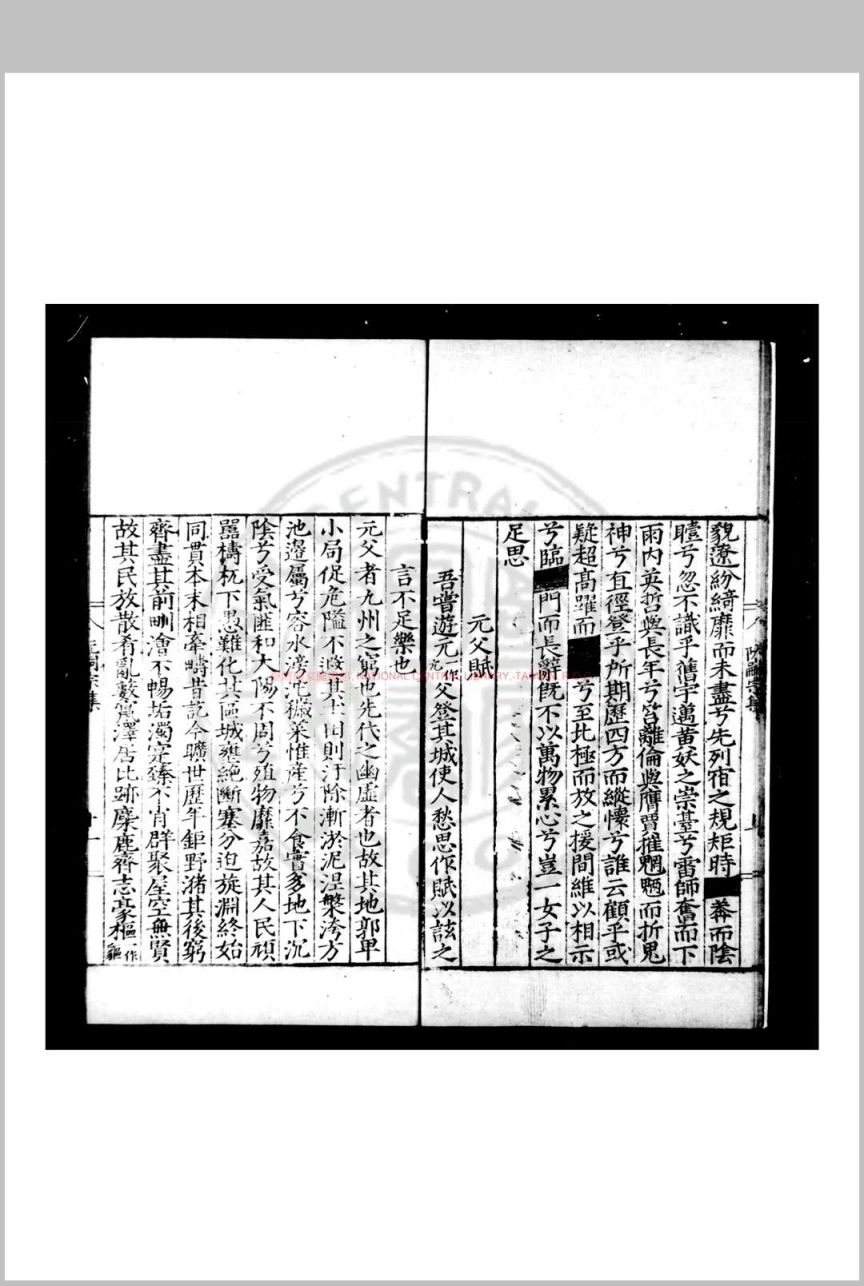 貌遼紛綺靡而未盡兮先列宿之規矩時■莾而陰
曀兮忽不識乎舊宇邁黄妖之崇臺兮雷師奮而下
雨内英哲與長年兮笞離倫與膺賈摧魍魎而折鬼
神兮直徑登乎所期歷四方而縱懷兮誰云顧乎或
疑超高躍而■兮至北極而放之援間維以相示
兮臨■門而長辭既不以萬物累心兮豈一女子之
足思
元父賦
吾嘗遊元父登其城使人愁思作賦以詆之
言不足樂也
元父者九州之窮也先代之幽虚者也故其地郭卑
小局促危隘不遐其土田則汙除漸淤泥涅槃洿方
池邉屬兮容水滂沱穢菜惟産兮不食實多地下沉
陰兮受氣匪和大陽不周兮殖物靡嘉故其人民頑
嚚檮杌下愚難化其區城壅絶斷塞分迫旋淵終始
同貫本末相牽疇昔訖今曠世歷年鉅野猪其後窮
齊盡其前甽澮不暢垢濁寔臻不肖群聚屋空無賢
故其民放散肴亂藪竄澤居比跡麋鹿齊志豪樞一作貙
阮嗣宗集
NATIONAL CENTRAL LIBRARY, TAIWAN